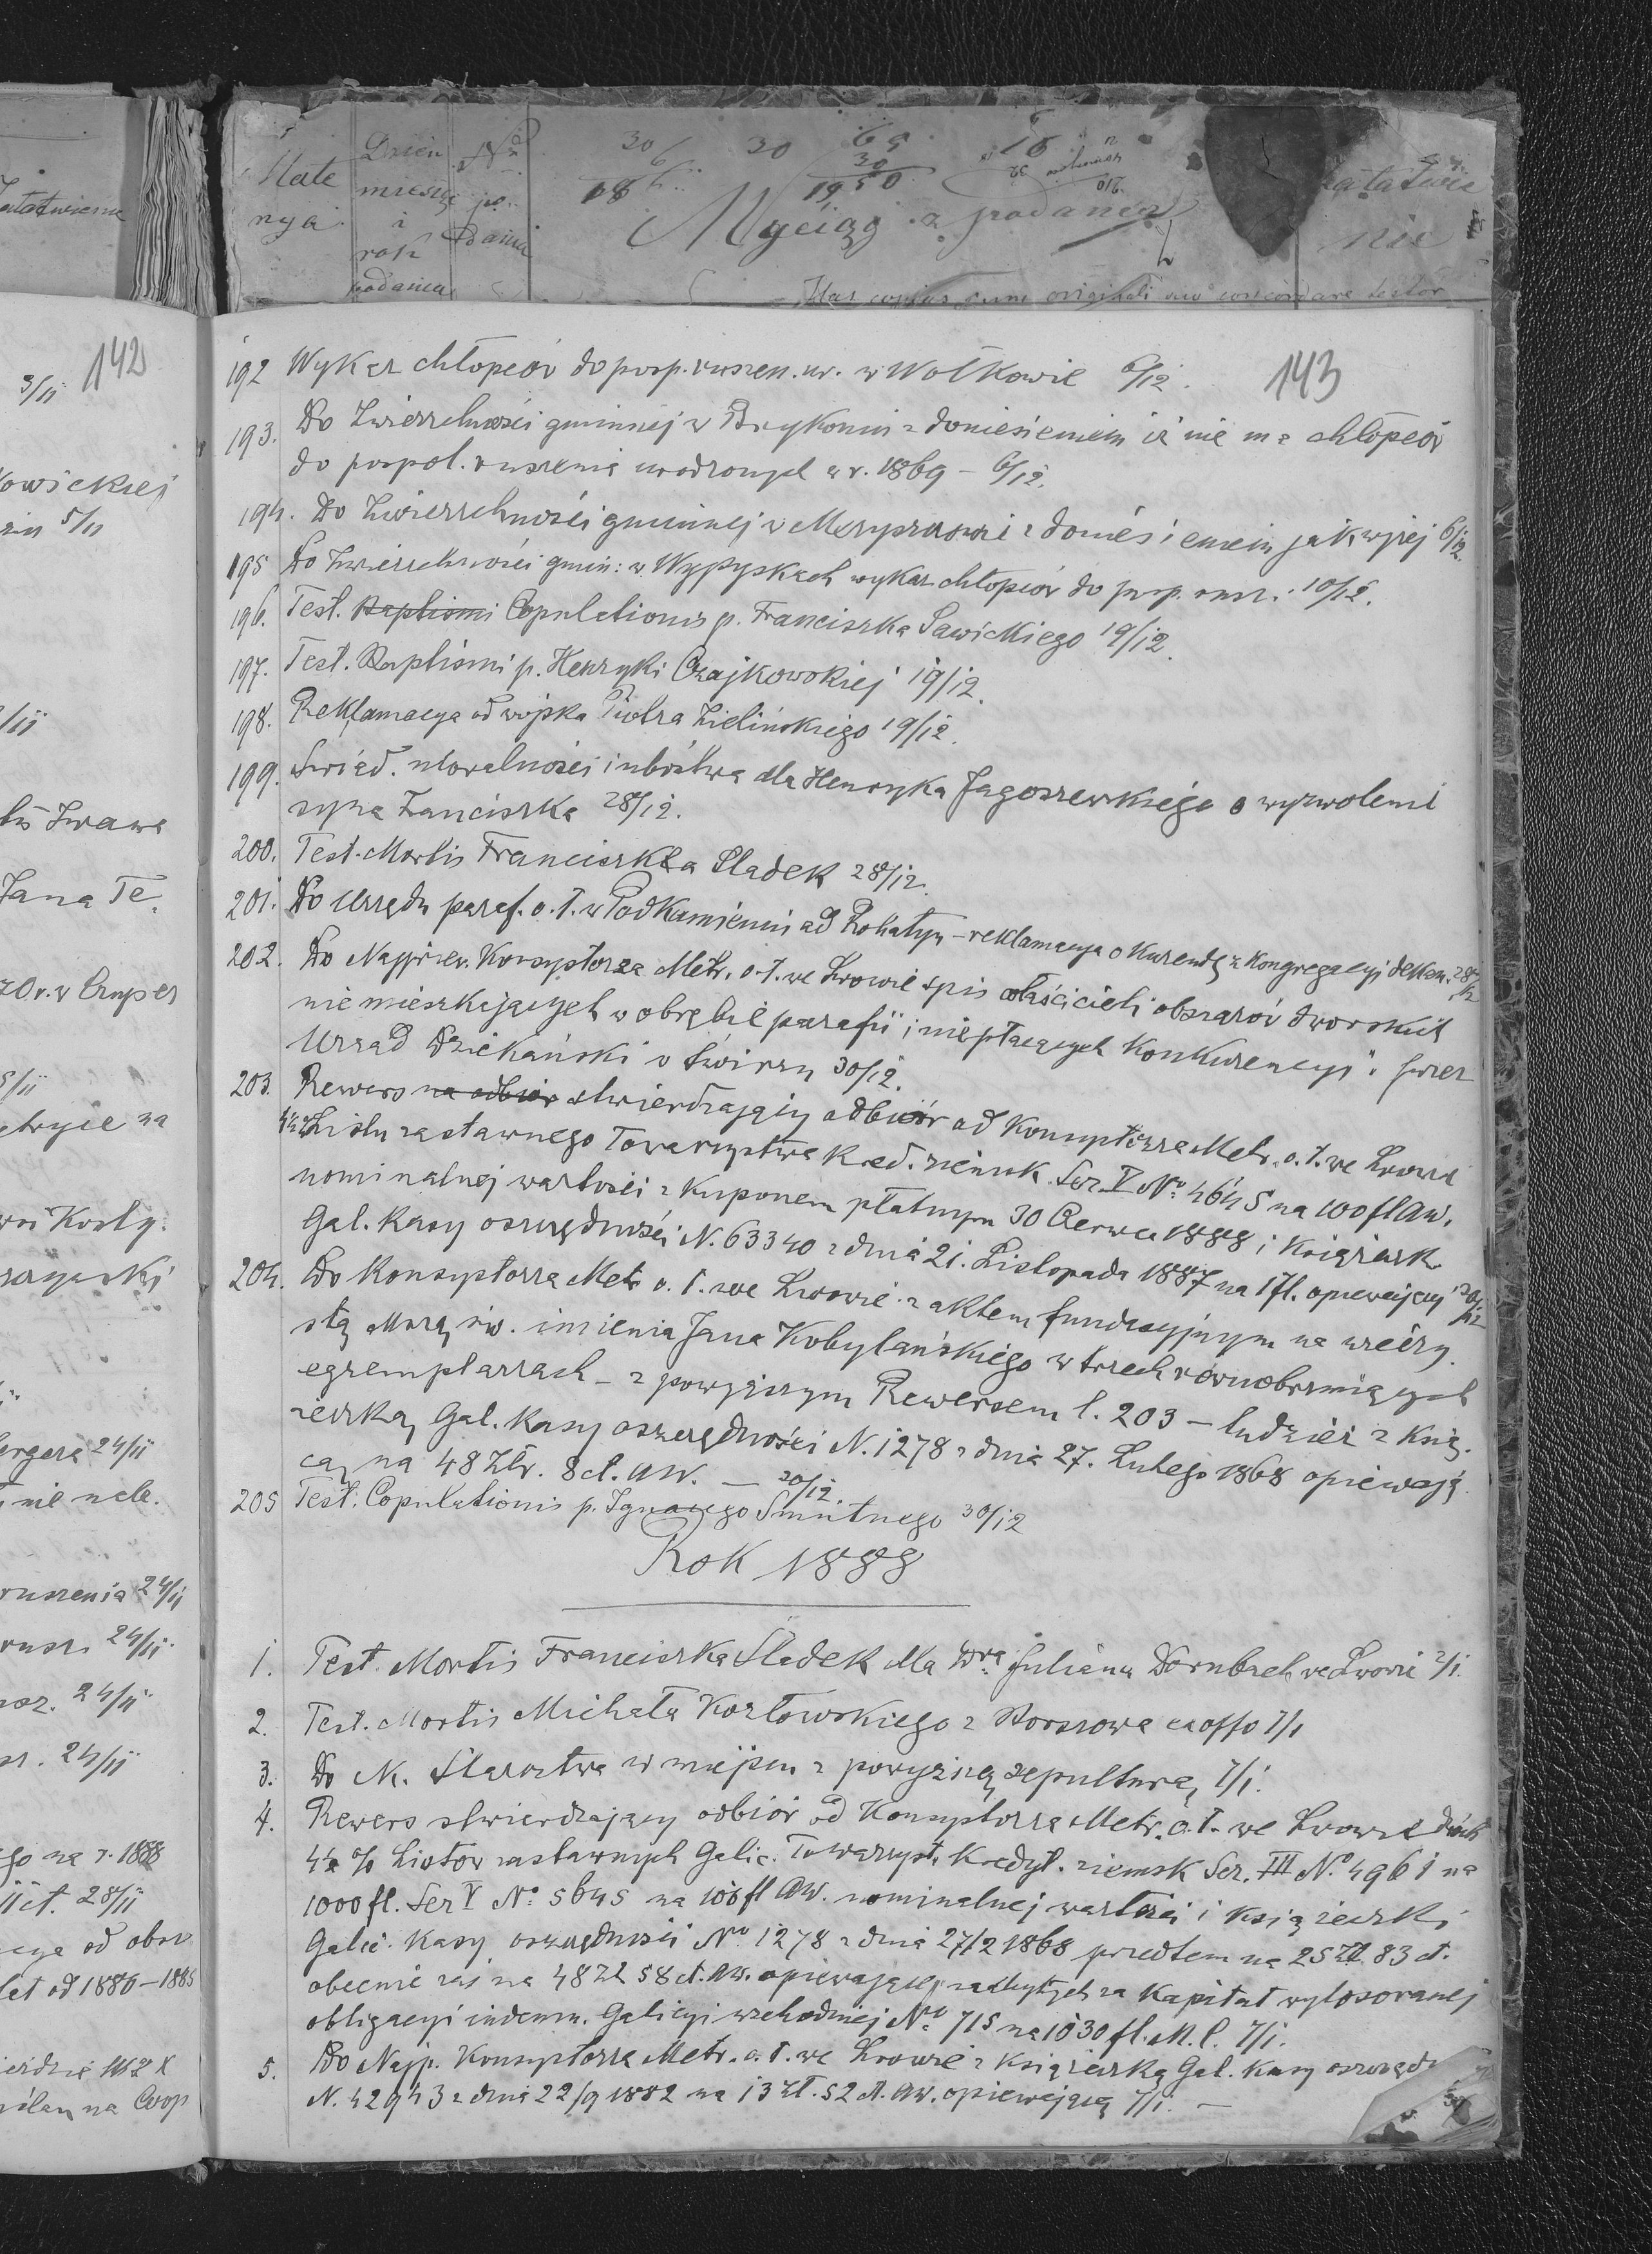 Załatwienie
142
3/11
5/11
Jana Te
24/11
nie nale.
ruszenia 24/11
rusz. 24/11
24/11
24/11
go na r. 1888
28/11
od obsz
let od 1880-1885
Nate
Dzień
No
30
30
65
miesiąc
po-
30
nya
i
dania
1950
Wyciąg z podania
Załatwie
rok
nie
podania
Has copias cum originali
143
192 Wykaz chłopców do posp. ruszen. ur. w Wołkowie 6/12.
193. Do Zwierzchności gminnej w Brykoniu z doniesieniem iż nie ma chłopców
do pospol. ruszenia urodzonych w r. 1869 - 6/12.
194. Do Zwierzchności gminnej w Meryszczowie z doniesieniem jak wyżej 6/12.
195 Do Zwierzchności gmin: w Wypyskach wykaz chłopców do posp. rusz. 10/12.
196. Test. Baptismi Copulationis p. Franciszka Sawickiego 19/12.
197. Test. Baptismi p. Henryki Czajkowskiej 19/12.
198. Reklamacya od wojska Piotra Zielińskiego 19/12.
199. Świad. moralności i ubóstwa dla Henryka Jagoszewskiego o wyzwolenie
syna Franciszka 28/12.
200. Test. Mortis Franciszka Sladek 28/12.
201. Do Urzędu paraf. o. ł. w Podkamieniu ad Rohatyn - reklamacya o kurendę z kongregacyi dekan. 28/12
202. Do Najprzew. Konsystorza Metr. o. ł. we Lwowie spis właścicieli obszarów dworskich
nie mieszkających w obrębie parafii i niepłacących konkurencyi: przez
Urząd dziekański w Świrzu 30/12.
203. Rewers na odbiór stwierdzający odbiór od Konsystorza Metr. o. ł. we Lwowie
4½% Listu zastawnego Towarzystwa kred. ziemsk. Ser. V No. 4645 na 100 fl aw.
nominalnej wartości z kuponem płatnym 30 Czerwca 1888 i książeczk
Gal. kasy oszczędności N. 63340 z dnia 21. Listopada 1887 na 17 fl. opiewającej 30/12
204. Do Konsystorza Metr. o. ł. we Lwowie z aktem fundacyjnym na wieczy
stą Mszę św. imienia Jana Kobylańskiego w trzech równobrzmiących
egzemplarzach - z powyższym Rewersem l. 203 - tudzież z ksią-
żeczką Gal. kasy oszczędności N. 1278 z dnia 27. Lutego 1868 opiewają
cą na 48 Złr. 8 ct. aw. - 30/12.
205 Test. Copulationis p. Ignacego Smutnego 30/12
Rok 1888
1. Test. Mortis Franciszka Sladek dla Dra Juliana Dornbach we Lwowie 2/1.
2. Test. Mortis Michała Kozłowskiego z Borszowa ex offo 7/1
3. Do M. Starostwa w miejscu z powyższą sepulturą 7/1.
4. Rewers stwierdzający odbiór od Konsystorza Metr. o. ł. we Lwowie dwóch
4½ % Listów zastawnych Galic. Towarzyst. kredyt. ziemsk Ser. III No. 4961 na
1000 fl. Ser V No. 5645 na 100 fl aw. nominalnej wartości i książeczki
Galic. kasy oszczędności No 1278 z dnia 27/2 1868 przedtem na 25 Zł. 83 ct.
obecnie zaś na 48 Zł 58 ct. aw. opiewającej nadbytych za kapitał wylosowanej
obligacyi indemn. Galicyi wschodniej No 715 na 1030 fl. M. C. 7/1.
5. Do Najp. Konsystorza Metr. o. ł. we Lwowie z książeczką Gal. kasy oszczęd
N. 42943 z dnia 22/9 1882 na 13 zł. 52 ct. aw. opiewającą 7/1. -